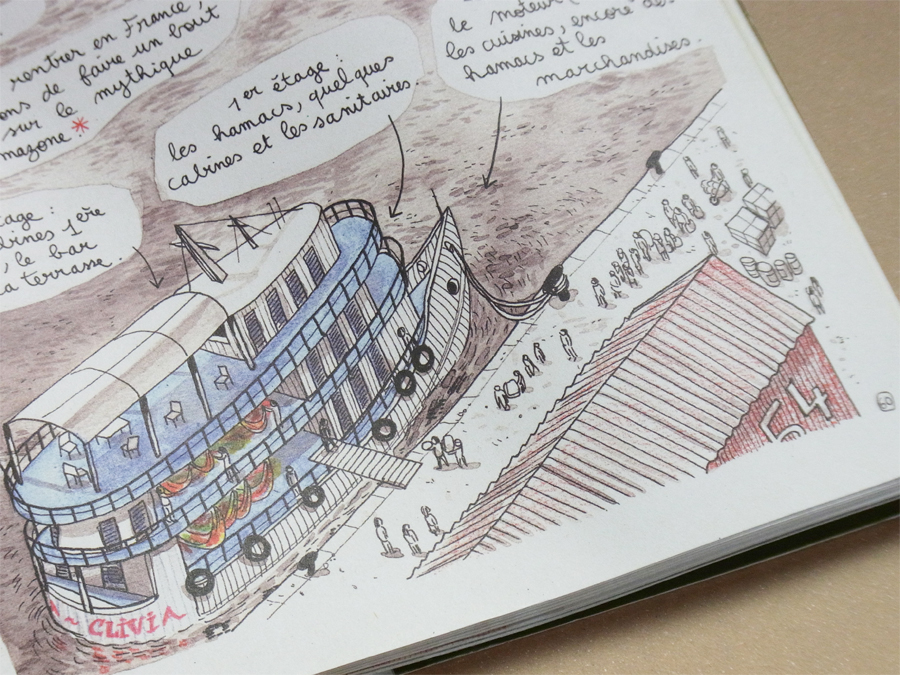 rentrer en France,
ons de faire un bout
sur le mythique
mazone.*
1er étage :
les hamacs, quelques
cabines et les sanitaires
le moteur
les cuisines, encore des
hamacs et les
marchandises.
tage :
bines 1ère
, le bar
a terrasse.
64
CLIVIA